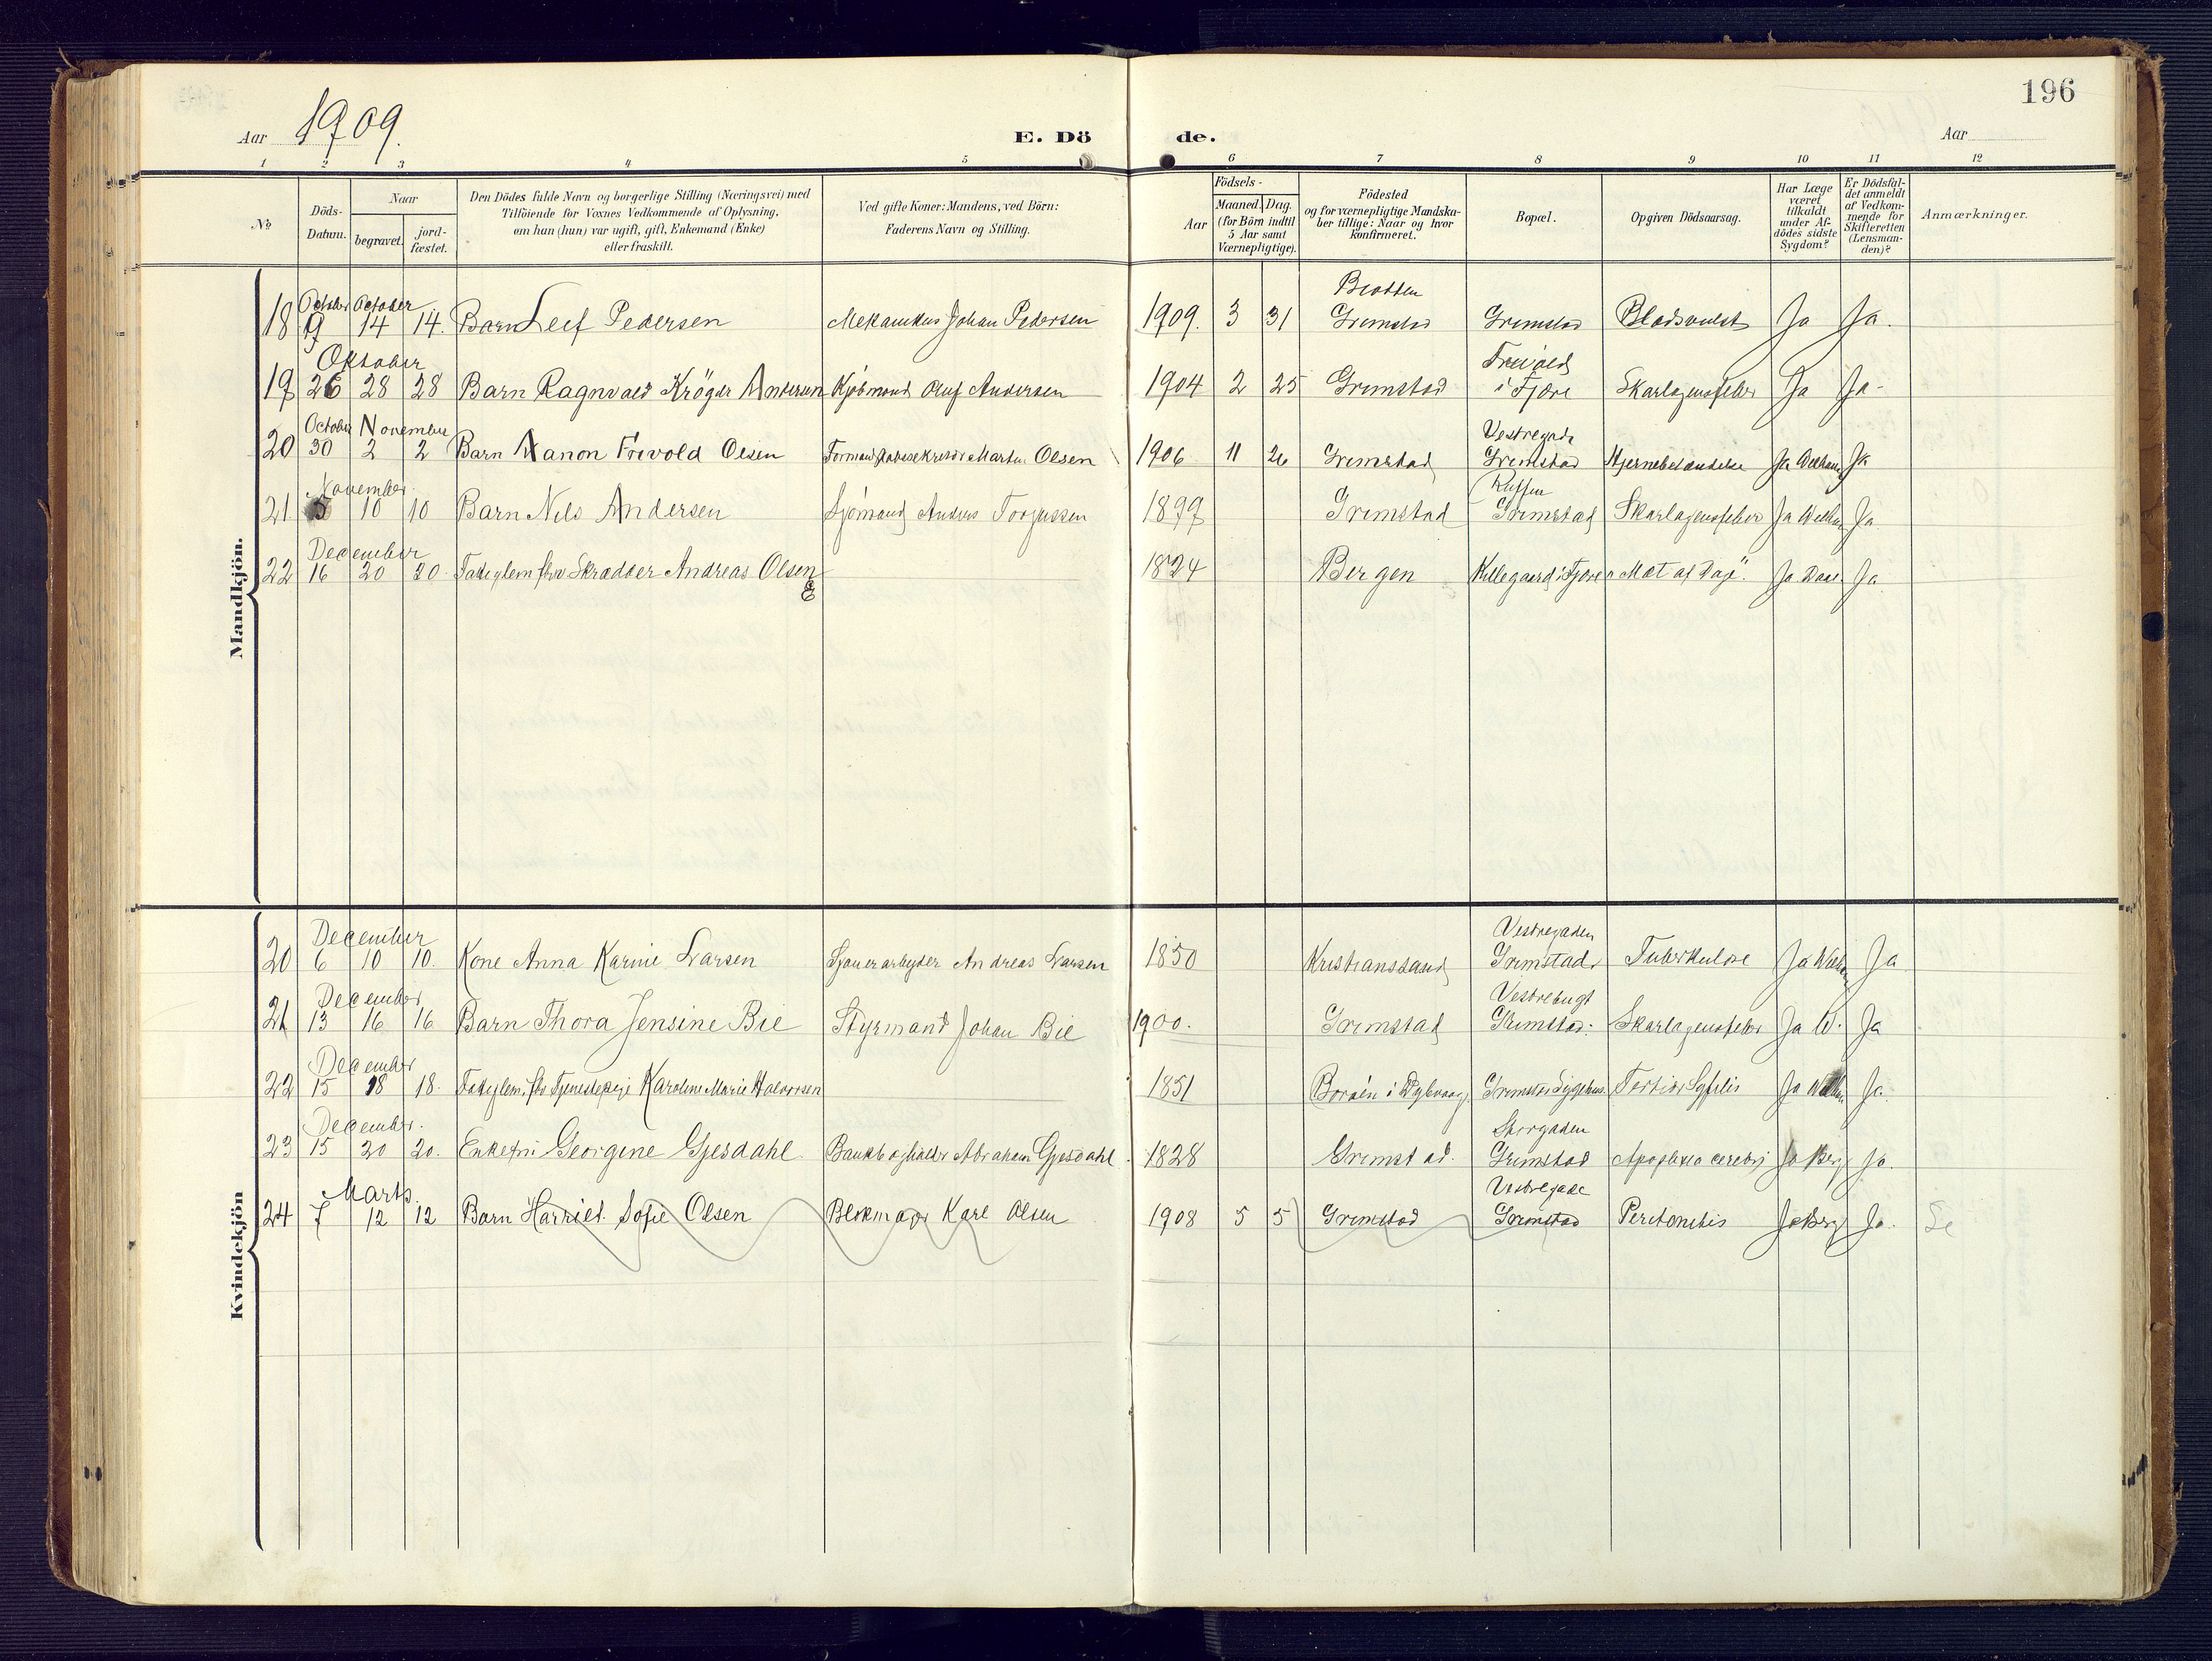 196
Aar 1909.
E. Dö de.
Aar
1 2 3 4 5 6 7 8 9 10 11 12
No
Döds-Datum.
Naar
begravet.
jordfæstet.
Den Dödes fulde Navn og borgerlige Stilling (Næringsvei) med
Tilföiende for Voxnes Vedkommende af Oplysning,
om han (hun) var ugift, gift, Enkemand (Enke)
eller fraskilt.
Ved gifte Koner: Mandens, ved Börn:
Faderens Navn og Stilling.
Födsels-
Aar
Maaned. Dag.
(for Börn indtil
5 Aar samt
Værnepligtige).
Födested
og for værnepligtige Mandska-
ber tillige: Naar og hvor
konfirmeret.
Bopæl.
Opgiven Dödsaarsag.
Har Læge
været
tilkaldt
under Af-
dödes sidste
Sygdom?
Er Dödsfal-
det anmeldt
af Vedkom-
mende for
Skifteretten
(Lensman-
den)?
Anmærkninger.
Mandkjön.
October October Bratten
18 9 14 14. Barn Leif Pedersen Mekanikus Johan Pedersen 1909. 3 31 Grimstad Grimstad Ja Ja.
Oktober Frivold
19 26 28 28 Barn Ragnvald Kröger Andersen Kjöbmand Oluf Andersen 1904 2 25 Grimstad i Fjære Skarlagensfeber Ja Ja-
October November Vestregade
20 30 2 2 Barn Manon Frivold Olsen Martin Olsen 1906 11 26 Grimstad Grimstad Hjernebetændelse Ja Ja
November
21. 5 10 10 Barn Nils Andersen Sjömand Anders Torjussen 1899 Grimstad Grimstad Skarlagensfeber Ja Ja.
December
22 16 20 20. Fattiglem fhv Skrædder Andreas Olsen 1824 Bergen Killegaard i Fjære "Mæt af Dage". Ja Ja.
E
Kvindekjön
December Vestregaden
20 6 10 10. Kone Anna Karine Larsen Sjauerarbeider Andreas Larsen 1850 Kristianssand Grimstad Tuberkulose Ja Ja
December Vestrebugt
21 13 16 16 Barn Thora Jensine Bie Styrmand Johan Bie 1900. Grimstad Grimstad. Skarlagensfeber Ja W. Ja
December
22 15 18 18. Fattiglem, fhv Tjenestepige Karoline Marie Halvorsen 1851 Boröen i Dybvaag Grimstad Sygehus. Tertiær Syfilis Ja Ja.
December. Storgaden
23 15 20 20. Enkefru Georgine Gjesdahl. Bankbogholder Abraham Gjesdahl. 1828 Grimstad. Grimstad Apoplexia cerebri Ja Berg Ja.
Marts. Vestregade
24 7 12 12 Barn Harriet Sofie Olsen Blikmager Karl Olsen 1908 5 5 Grimstad Grimstad Peritonitis Ja Berg Ja. Se